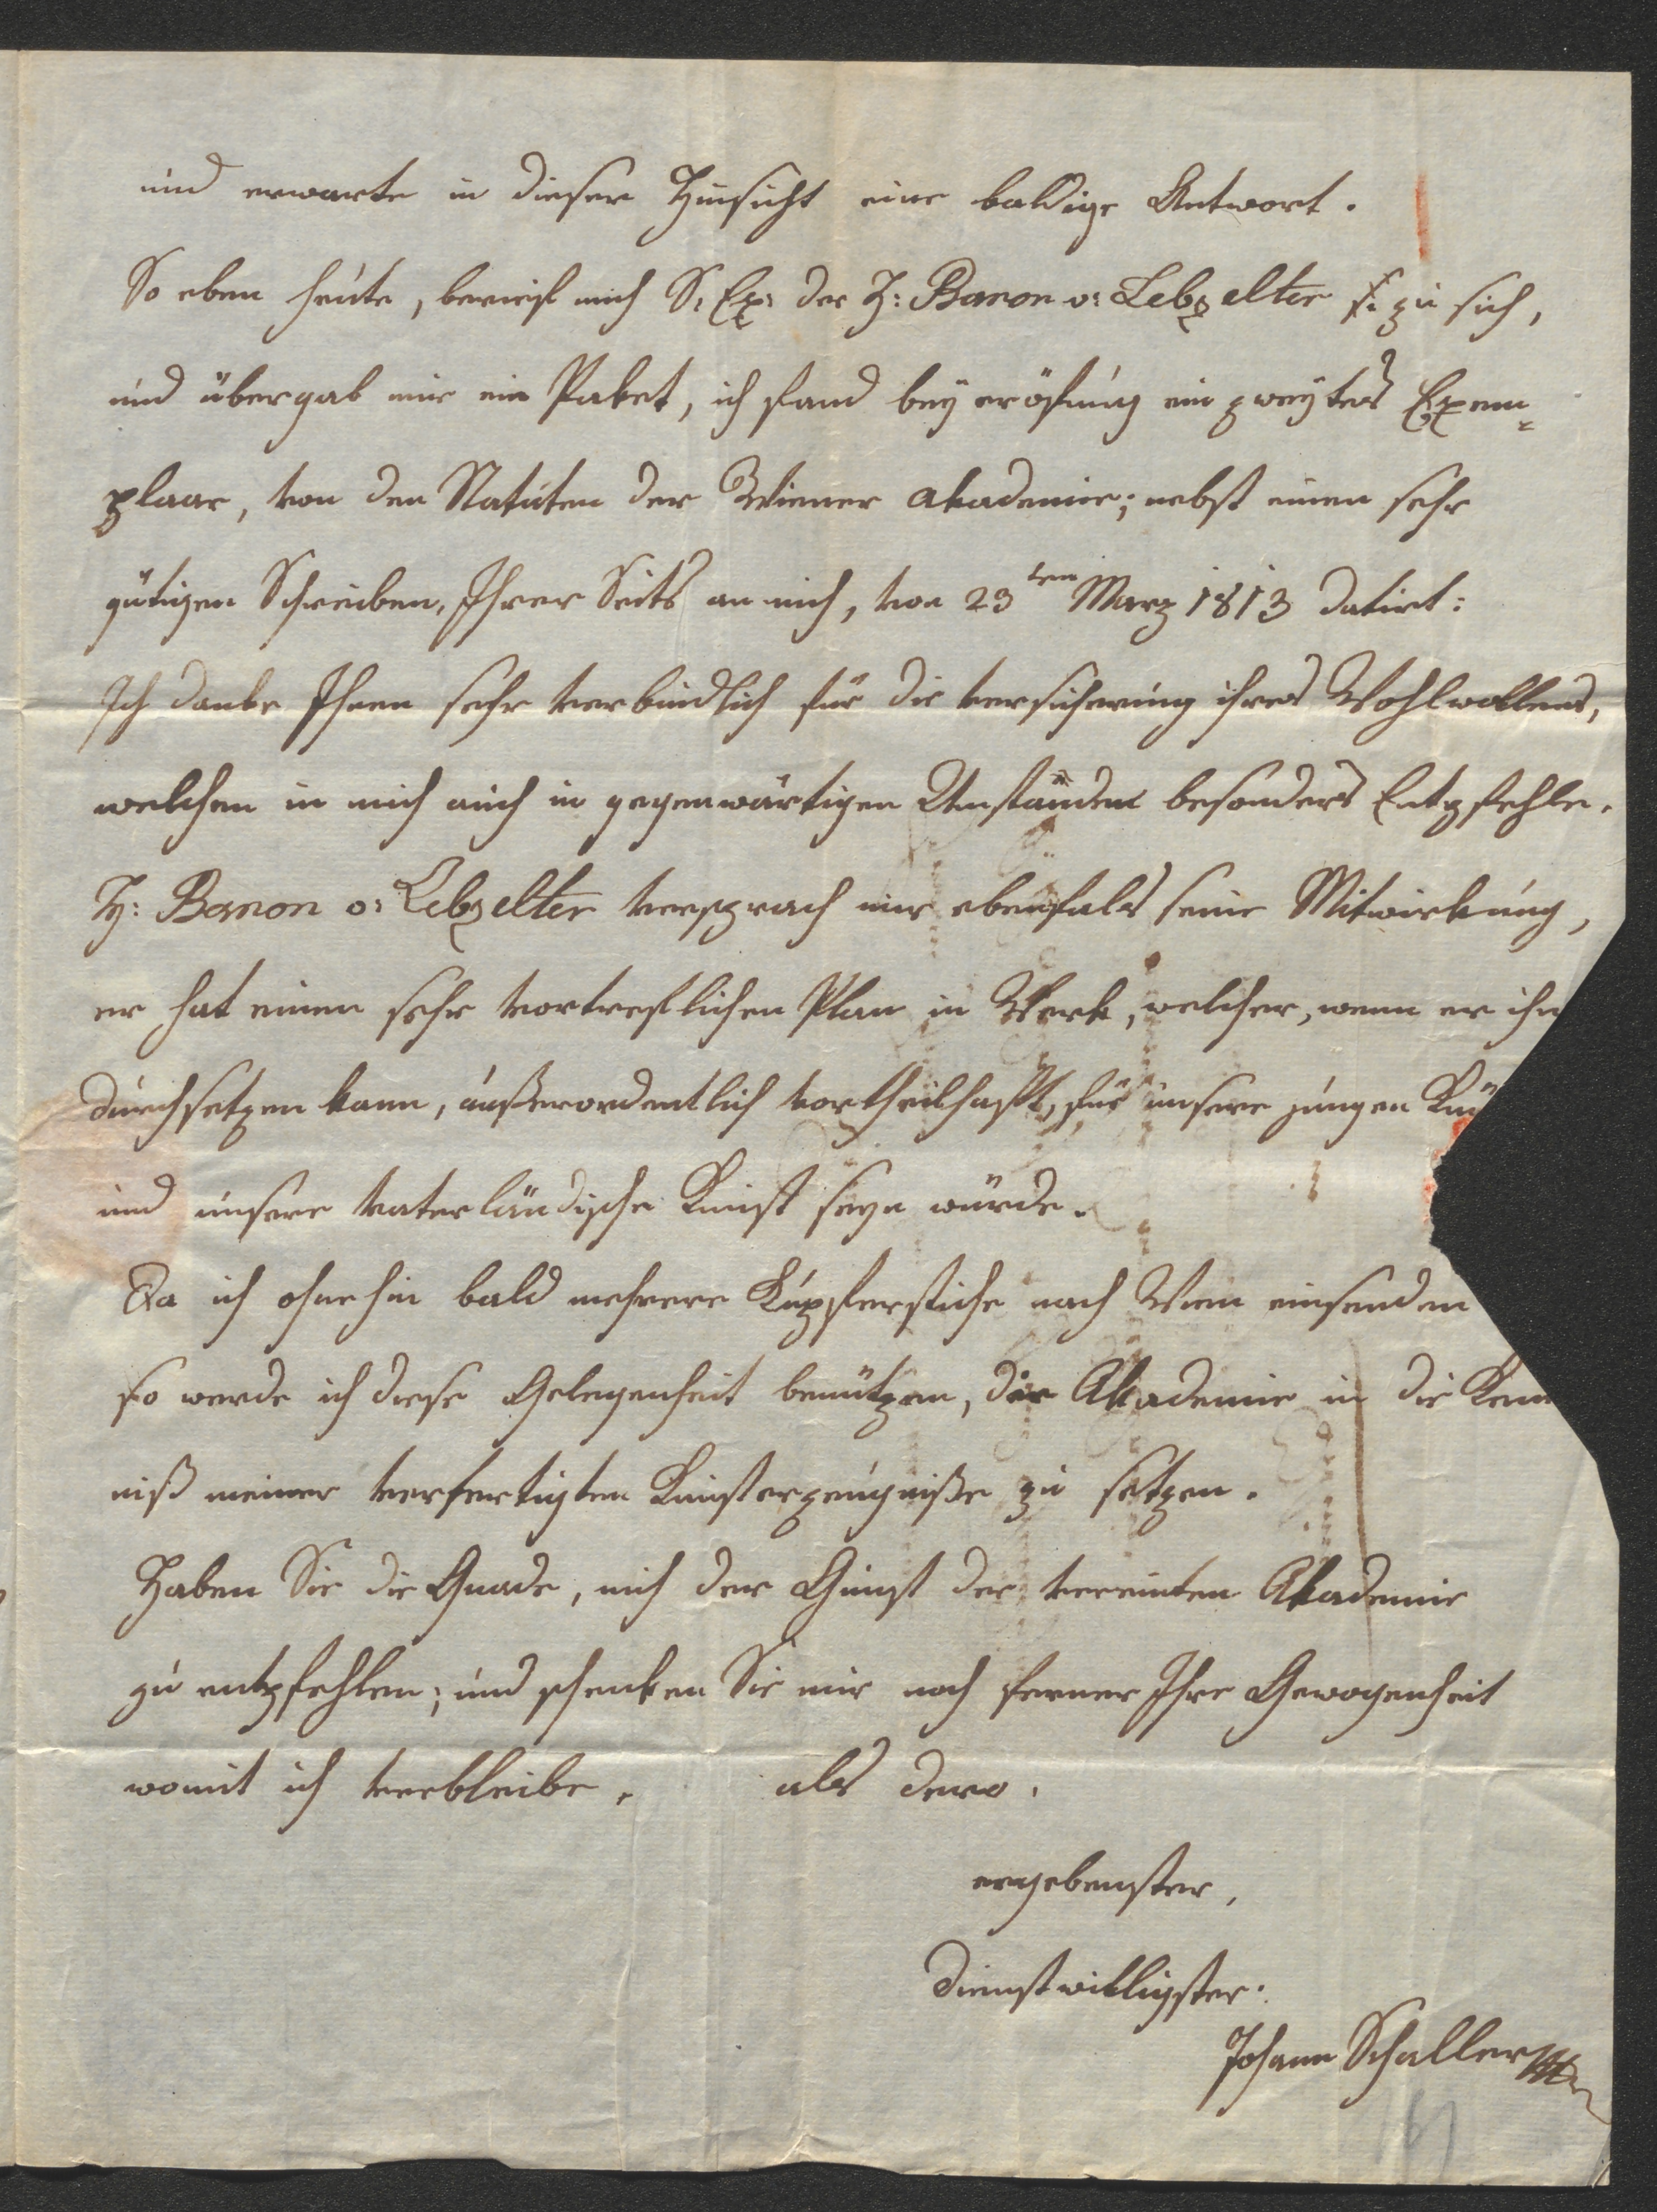 und erwarte in dieser Hinsicht eine baldige Antwort.
So eben heute, berief mich S: Ex: der H: Baron v: Lebzelter zu sich,
und übergab mir ein Paket, ich fand bey eröfnung ein zweytes Exem=
plaar, von den Statuten der Wiener Akademie; nebst einen sehr
gütigen Schreiben, Ihrer Seits an mich, von 23ten Marz 1813 datirt:
Ich danke Ihnen sehr verbindlich für die versicherung ihres Wohlwollens,
welchen in mich auch in gegenwärtigen Umständen besonders Entpfehle.
H: Baron v: Lebzelter versprach mir ebenfals seine Mitwirkung,
er hat einen sehr vortreflichen Plan in Werk, welcher, wenn er ihn
durchsetzen kann, außerordentlich vortheilhaft, für unsere jungen Kü
und unsere vaterländische Kunst seyn würde.
Da ich ohnehin bald mehrere Kupferstiche nach Wien einsenden
so werde ich diese Gelegenheit benützen, die Akademie in die Kenn
niß meiner verfertigten Kunsterzeugniße zu setzen.
Haben Sie die Gnade, mich der Gunst der vereinten Akademie
zu entpfehlen; und schenken Sie mir noch ferner Ihre Gewogenheit
womit ich verbleibe. als dero.
ergebenster,
dienstwilligster.
Johann Schaller